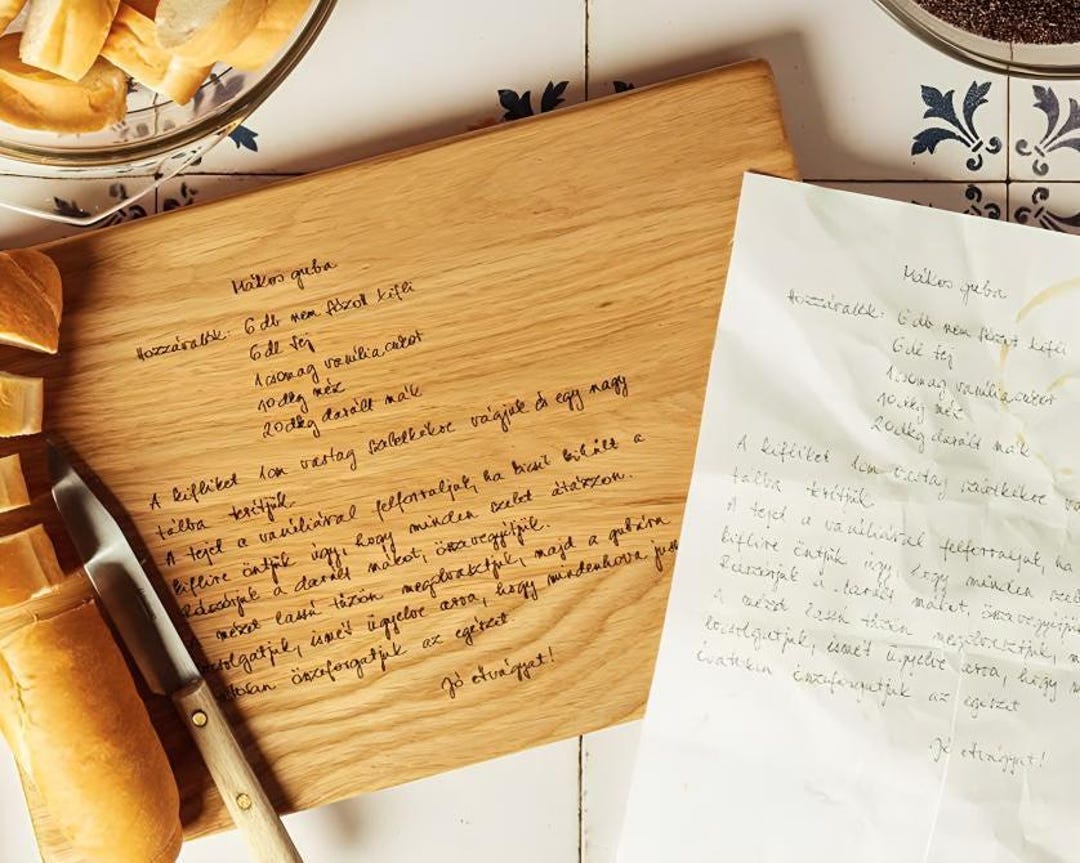 Mákos guba
Hozzávalók: 6 db nem friss kifli
6 dl tej
1 csomag vanília cukor
10 dkg méz
20 dkg darált mák
A kifliket 1 cm vastag szeletekre vágjuk és egy nagy
tálba terítjük.
A tejet a vaníliával felforraljuk, ha kicsit kihűlt a
kiflire öntjük úgy, hogy minden szelet átázzon.
Rászórjuk a darált mákot, összevegyítjük.
mézet lassú tűzön megolvasztjuk, majd a gubára
csolgatjuk, ismét ügyelve arra, hogy mindenhova jus
összeforgatjuk az egészet
Jó étvágyat!
Mákos guba
Hozzávalók: 6 db nem friss kifli
6 dl tej
1 csomag vanília cukor
10 dkg méz
20 dkg darált mák
A kifliket 1 cm vastag szeletekre vá
tálba terítjük
A tejet a vaníliával felforraljuk, ha
kiflire öntjük úgy, hogy minden szel
Rászórjuk a darált mákot, összevegyítjük
A mézet lassú tűzön megolvasztjuk, m
locsolgatjuk, ismét ügyelve arra, hogy m
óvatosan összeforgatjuk az egészet
Jó étvágyat!